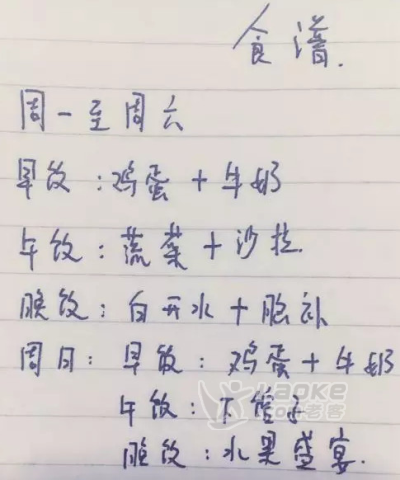 食谱.
周一至周六
早饭:鸡蛋+牛奶
午饭:蔬菜+沙拉.
晚饭:白开水+脑补
周日:早饭:鸡蛋+牛奶
午饭:下馆子
晚饭:水果盛宴.